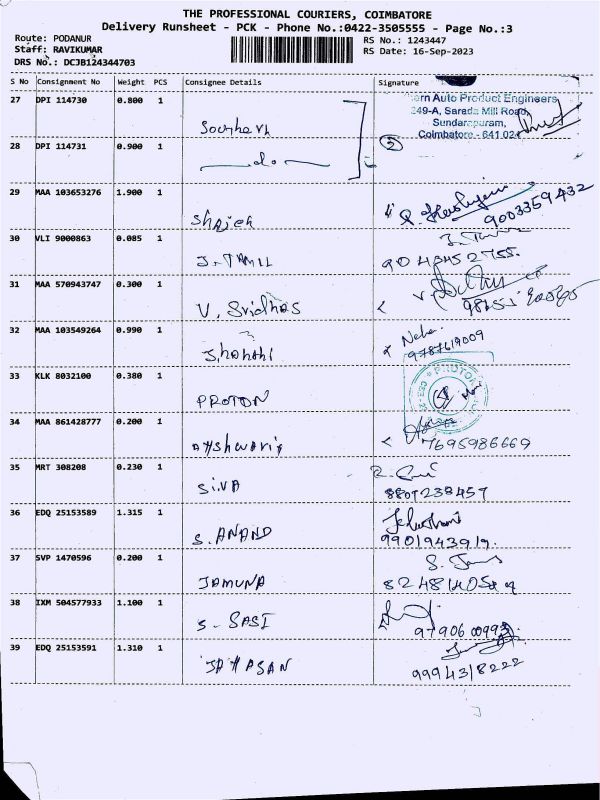 THE PROFESSIONAL COURIERS, COIMBATORE
Delivery Runsheet - PCK - Phone No.:0422-3505555 - Page No.:3
Route: PODANUR
RS No.: 1243447
Staff: RAVIKUMAR
RS Date: 16-Sep-2023
DRS No.: DCJB124344703
S No Consignment No Weight PCS Consignee Details Signature
27 DPI 114730 0.800 1 Southern
ern Auto Product Engineers
249-A, Sarada Mill Road,
Sundarapuram,
Coimbatore - 641 024
28 DPI 114731 0.900 1 do
29 MAA 103653276 1.900 1 9003359432
30 VLI 9000863 0.085 1 J. TAMIL
31 MAA 570943747 0.300 1 V. Sridhas
32 MAA 103549264 0.990 1 Neha
9787619009
33 KLK 8032100 0.380 1 PROTON
34 MAA 861428777 0.200 1 7695986669
35 MRT 308208 0.230 1 SIVA
8807238457
36 EDQ 25153589 1.315 1 S. ANAND
9901943919
37 SVP 1470596 0.200 1 JAMUNA
38 IXM 504577933 1.100 1 S. SASI
39 EDQ 25153591 1.310 1 JAHASAN
9994318222